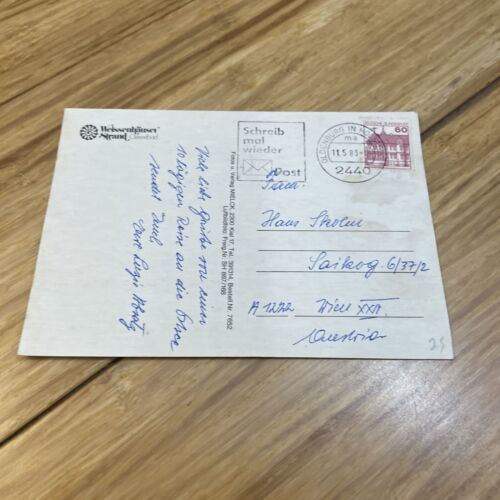 Weissenhäuser
Strand Ostseebad
Schreib
mal
wieder
Post
OLDENBURG IN H
ma
11.5.85
2440
60
Foto u. Verlag MELCK, 2300 Kiel 17, Tel. 392514, Bestell Nr. 7652
Luftbildfreig. Freig Nr. SH 887/168
Viele liebe Grüße von einer
10 tägigen Reise an die Ostsee
sendet Euch
Hans
Saikog. 6/37/2
A 1222 Wien XXII.
Austria
25